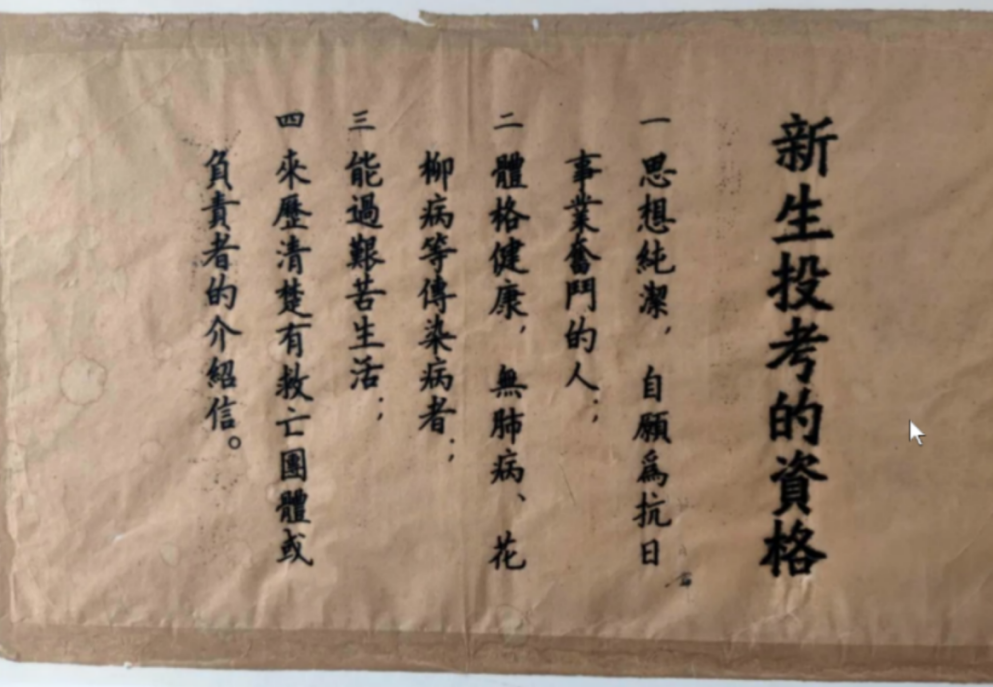 新生投考的資格
一 思想純潔，自願爲抗日
事業奮鬥的人；
二 體格健康，無肺病、花
柳病等傳染病者；
三 能過艱苦生活；
四 來歷清楚有救亡團體或
負責者的介紹信。